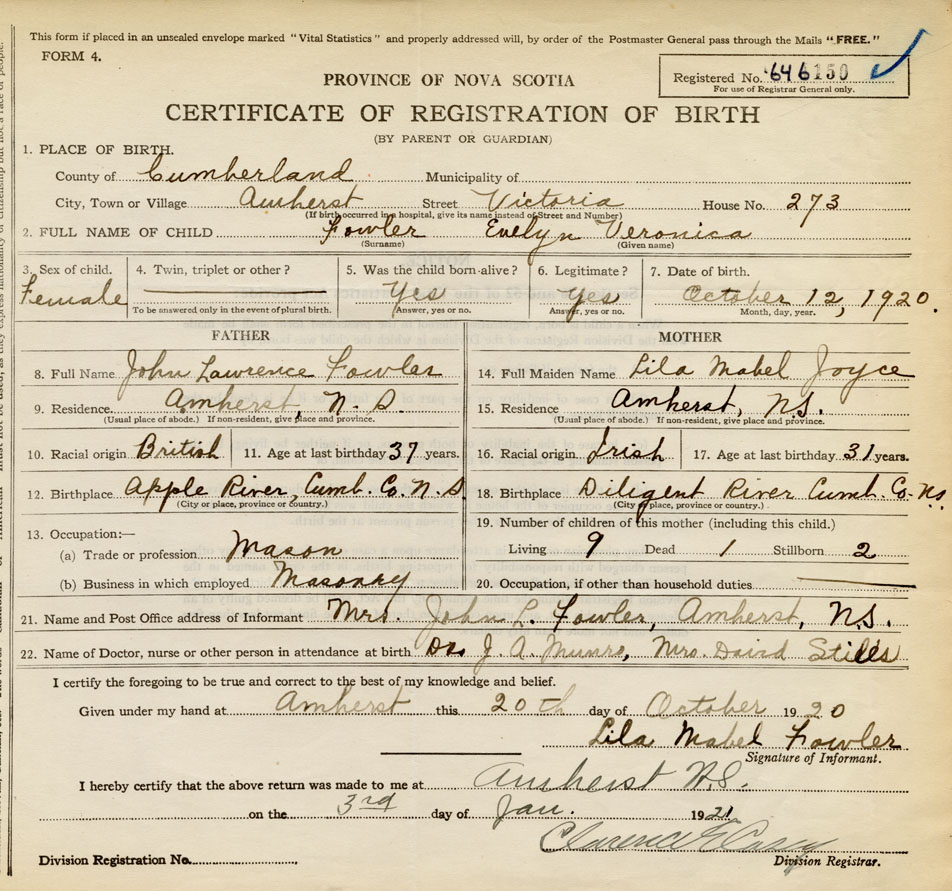 This form if placed in an unsealed envelope marked "Vital Statistics" and properly addressed will, by order of the Postmaster General pass through the Mails "FREE."
FORM 4.
PROVINCE OF NOVA SCOTIA
Registered No. 646150
For use of Registrar General only.
CERTIFICATE OF REGISTRATION OF BIRTH
(BY PARENT OR GUARDIAN)
1. PLACE OF BIRTH.
County of Cumberland Municipality of
City, Town or Village Amherst Street Victoria House No. 273
(If birth occurred in a hospital, give its name instead of Street and Number)
2. FULL NAME OF CHILD Fowler Evelyn Veronica
(Surname) (Given name)
3. Sex of child. 4. Twin, triplet or other? 5. Was the child born-alive? 6. Legitimate? 7. Date of birth.
Female Yes Yes October 12, 1920.
To be answered only in the event of plural birth. Answer, yes or no. Answer, yes or no. Month, day, year.
FATHER MOTHER
8. Full Name John Lawrence Fowler 14. Full Maiden Name Lila Mabel Joyce
9. Residence Amherst, N.S. 15. Residence Amherst, N.S.
(Usual place of abode.) If non-resident, give place and province. (Usual place of abode.) If non-resident, give place and province.
10. Racial origin British 11. Age at last birthday 37 years. 16. Racial origin Irish 17. Age at last birthday 31 years.
12. Birthplace Apple River, Cumb. Co. N.S. 18. Birthplace Diligent River Cumb. Co. N.S.
(City or place, province or country.) (City or place, province or country.)
13. Occupation:— 19. Number of children of this mother (including this child.)
(a) Trade or profession Mason Living 9 Dead 1 Stillborn 2
(b) Business in which employed Masonry 20. Occupation, if other than household duties
21. Name and Post Office address of Informant Mrs. John L. Fowler, Amherst, N.S.
22. Name of Doctor, nurse or other person in attendance at birth Dr. J. A. Munro, Mrs. David Stiles
I certify the foregoing to be true and correct to the best of my knowledge and belief.
Given under my hand at Amherst this 20th day of October 1920
Lila Mabel Fowler
Signature of Informant.
I hereby certify that the above return was made to me at Amherst N.S.
on the 3rd day of Jan. 1921
Clarence E Casey
Division Registration No. Division Registrar.